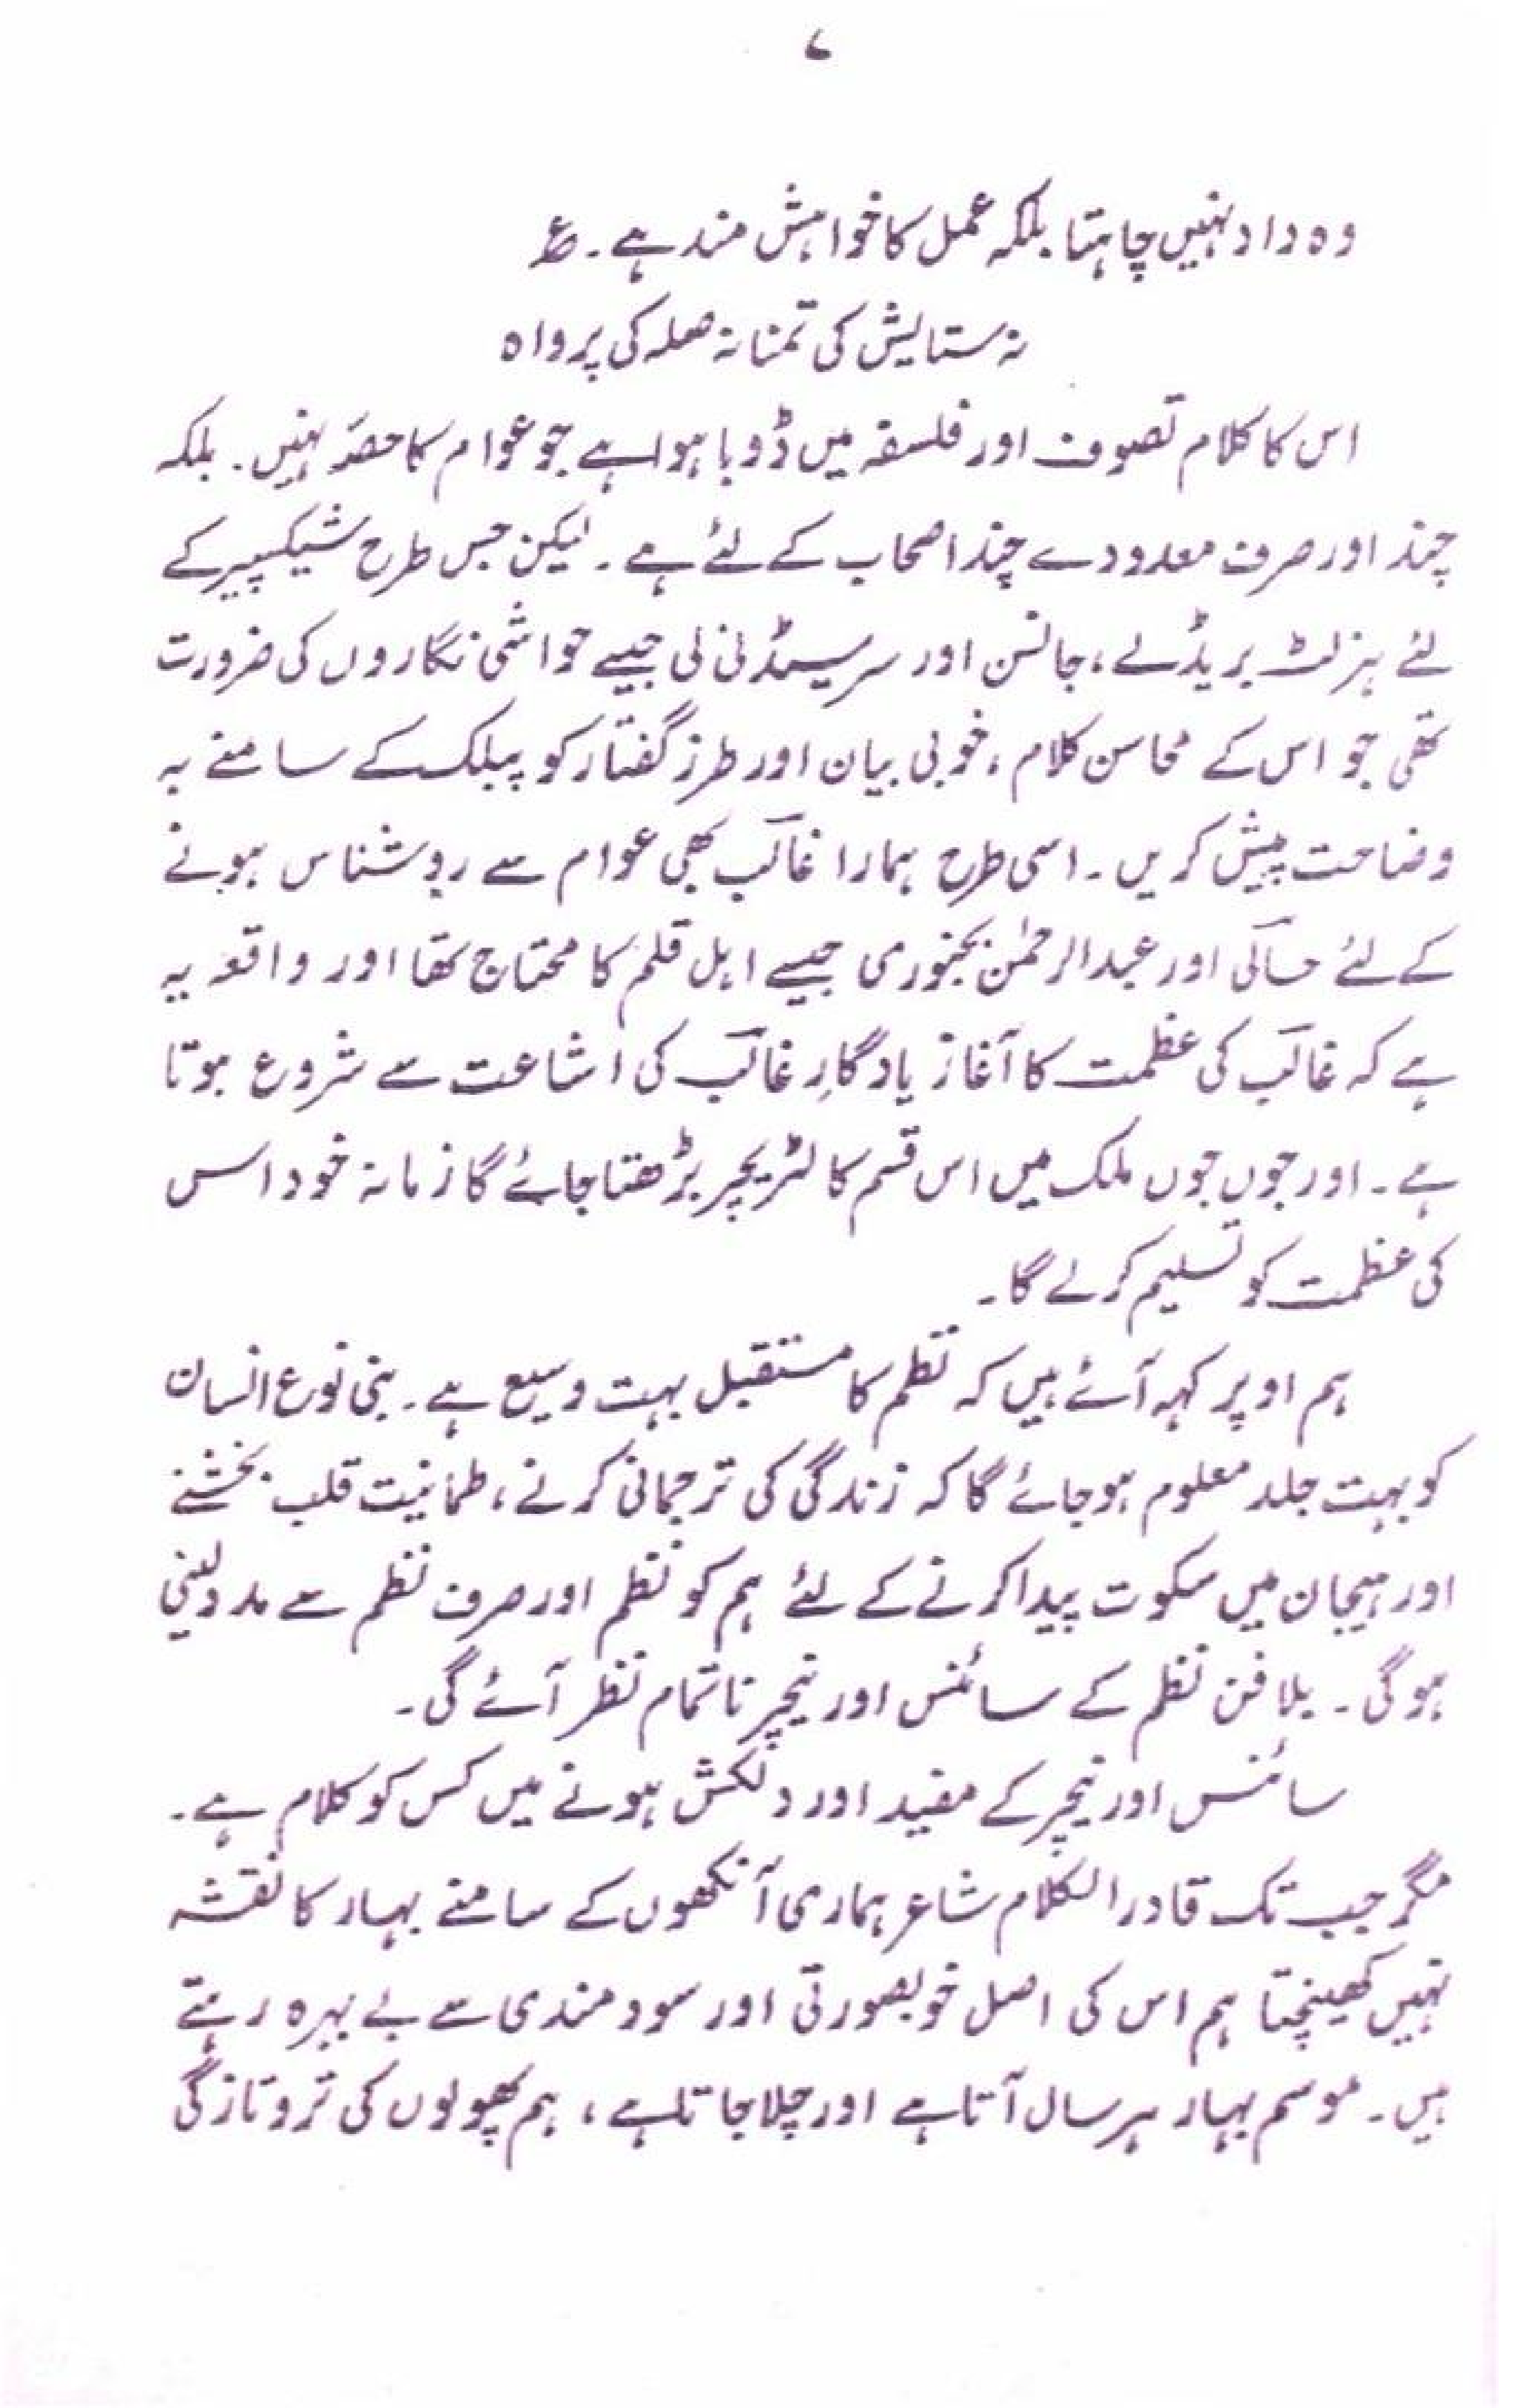 ۷
وہ داد نہیں چاہتا بلکہ عمل کا خواہش مند ہے۔ ع
نہ ستایش کی تمنا نہ صلہ کی پرواہ
اس کا کلام تصوف اور فلسفہ میں ڈوبا ہوا ہے جو عوام کا حصہ نہیں۔ بلکہ
چند اور صرف معدودے چند اصحاب کے لئے ہے۔ لیکن جس طرح شیکسپیر کے
لئے ہزلٹ بریڈلے، جانسن اور سر سیڈنی لی جیسے حواشی نگاروں کی ضرورت
تھی جو اس کے محاسن کلام، خوبی بیان اور طرز گفتار کو پبلک کے سامنے بہ
وضاحت پیش کریں۔ اسی طرح ہمارا غالب بھی عوام سے روشناس ہونے
کے لئے حالی اور عبدالرحمٰن بجنوری جیسے اہل قلم کا محتاج تھا اور واقعہ یہ
ہے کہ غالب کی عظمت کا آغاز یادگارِ غالب کی اشاعت سے شروع ہوتا
ہے۔ اور جوں جوں ملک میں اس قسم کا لٹریچر بڑھتا جائے گا زمانہ خود اس
کی عظمت کو تسلیم کرلے گا۔
ہم اوپر کہہ آئے ہیں کہ نظم کا مستقبل بہت وسیع ہے۔ بنی نوع انسان
کو بہت جلد معلوم ہوجائے گا کہ زندگی کی ترجمانی کرنے، طمانیت قلب بخشنے
اور ہیجان میں سکوت پیدا کرنے کے لئے ہم کو نظم اور صرف نظم سے مدد لینی
ہوگی۔ بلا فن نظم کے سائنس اور نیچر ناتمام نظر آئے گی۔
سائنس اور نیچر کے مفید اور دلکش ہونے میں کس کو کلام ہے۔
مگر جب تک قادر الکلام شاعر ہماری آنکھوں کے سامنے بہار کا نقشہ
نہیں کھینچتا ہم اس کی اصل خوبصورتی اور سود مندی سے بے بہرہ رہتے
ہیں۔ موسم بہار ہر سال آتا ہے اور چلا جاتا ہے، ہم پھولوں کی تروتازگی